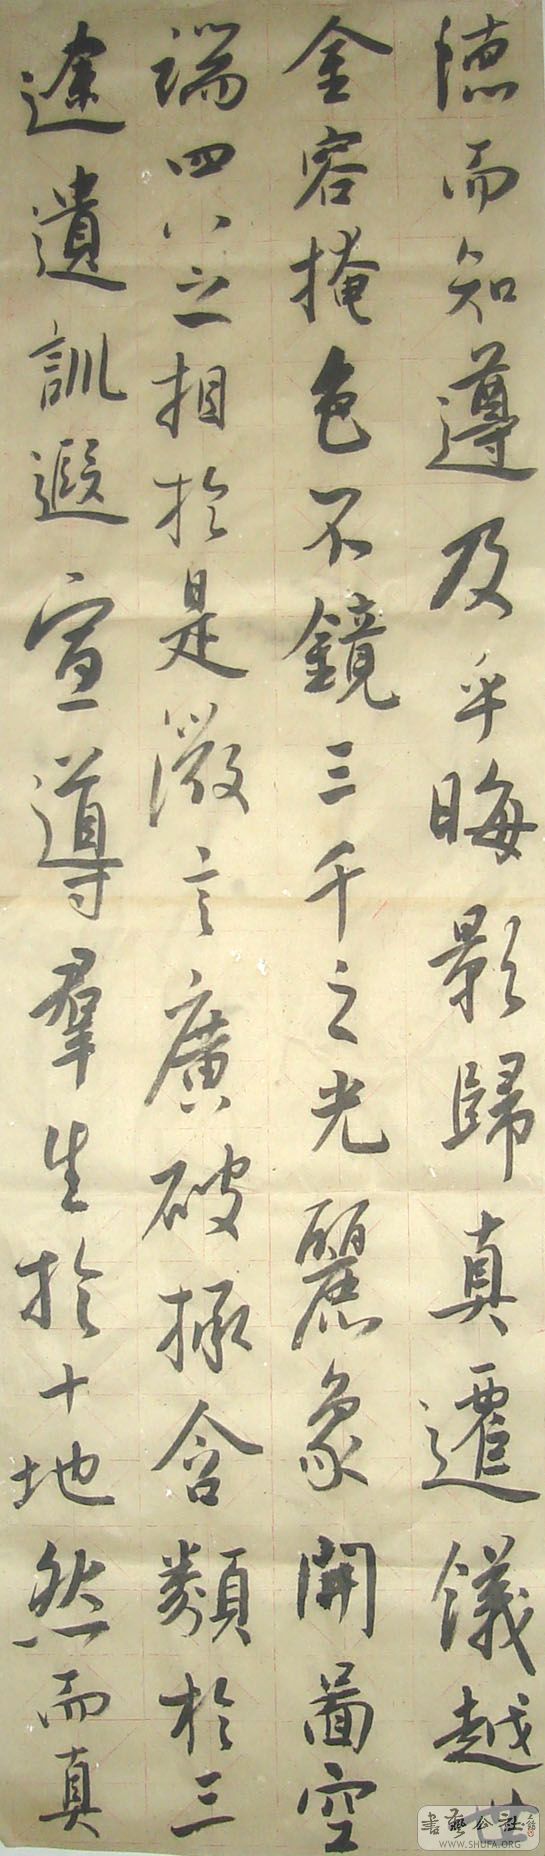 德而知遵及乎晦影歸真遷儀越世
金容掩色不鏡三千之光麗象開圖空
端四八之相於是微言廣破拯含類於三
途遺訓遐宣導羣生於十地然而真
書藝公社
WWW.SHUFA.ORG